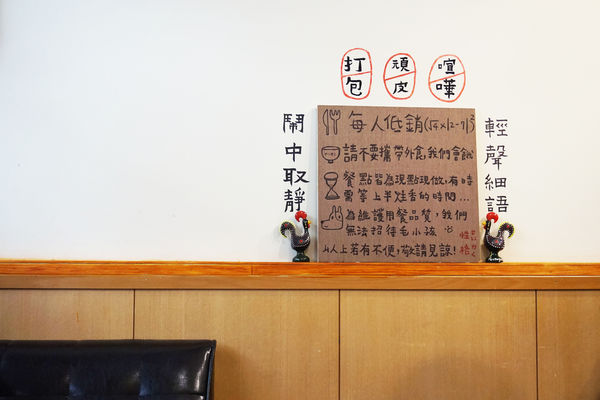 打包
頑皮
喧嘩
鬧中取靜
每人低銷(√4×12-7)³
請不要攜帶外食，我們會餓
餐點皆為現點現做，有時
需等上半炷香的時間...
為維護用餐品質，我們
無法招待毛小孩
以上若有不便，敬請見諒！
性格
輕聲細語